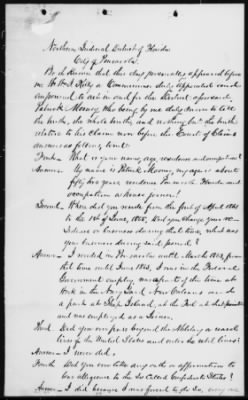 Northern Judicial District of Florida
City of Pensacola.
Be it known that this day personally appeared before
me a Commissioner duly appointed and
empowered to act in and for the District aforesaid,
Patrick Mooney, who being by me duly sworn to tell
the truth, the whole truth, and nothing but the truth
relative to his claim now before the Court of Claims
answers as follows, to wit:
First— What is your name, age, residence and occupation?
Answer My name is Patrick Mooney, my age is about
fifty two years, residence and
occupation is
Second When did you reside from the first of April 1861
to the 1st of June, 1865, did you change your
residence or business during that time, what was
your business during said period?
Answer— I resided in Pensacola until March 1862, from
that time until June 1863, I was in the Federal
Government employ, part of the time at
work in the Navy Yard, New Orleans and
a part at Ship Island, at the Fort at that point
and was employed as a
Third Did you ever pass beyond the Military or naval
lines of the United States and enter the rebel lines?
Answer— I never did.
Fourth Did you ever take any oath or affirmation to
bear allegiance to the so called Confederate States?
Answer— I did because I was forced to do so,